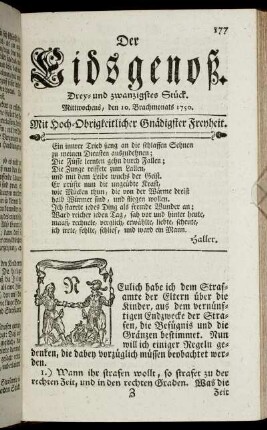 177
Der
Eidsgenoß.
Drey- und zwanzigstes Stück.
Mittwochens, den 10. Brachmonats 1750.
Mit Hoch-Obrigkeitlicher Gnädigster Freyheit.
Ein innrer Trieb fieng an die schlaffen Sehnen
zu meinen Diensten auszudehnen;
Die Füsse lernten gehn durch Fallen;
Die Zunge
zum Lallen,
und mit dem Leibe wuchs der Geist.
Er prüfte nun die ungeübte Kraft,
wie Mücken thun, die von der Wärme dreist
halb Würmer sind, und fliegen wollen.
Ich starrte jedes Ding als fremde Wunder an;
Ward reicher jeden Tag, sah vor und hinter heute,
maaß, rechnete, verglich, erwählte, liebte, scheute,
ich irrte, fehlte, schlief, und ward ein Mann.
Haller.
NEulich habe ich dem Straf-
amte der Eltern über die
Kinder, aus dem vernünf-
tigen Endzwecke der Stra-
fen, die Befugnis und die
Gränzen bestimmet. Nun
will ich einiger Regeln ge-
denken, die dabey vorzüglich müssen beobachtet wer-
den.
1.) Wann ihr strafen wollt, so strafet zu der
rechten Zeit, und in den rechten Graden. Was die
Z
Zeit